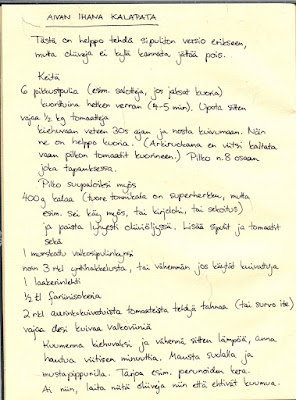 AIVAN IHANA KALAPATA
Tästä on helppo tehdä sipuliton versio erikseen,
mutta oliiveja ei kyllä kannata jättää pois.
Keitä
6 pikkusipulia (esim. salotteja, jos jaksat kuoria)
kuorittuina hetken verran (4-5 min). Upota sitten
vajaa ½ kg tomaatteja
kiehuvaan veteen 30s ajan ja nosta kuivumaan. Näin
ne on helppo kuoria. (Arkiruokana en viitsi kaltata
vaan pilkon tomaatit kuorineen.) Pilko n. 8 osaan
joka tapauksessa.
Pilko suupaloiksi myös
400 g kalaa (tuore tonnikala on superherkkua, mutta
esim. sei käy myös, tai kirjolohi, tai sekoitus)
ja paista lyhyesti oliiviöljyssä. Lisää sipulit ja tomaatit
sekä
1 murskattu valkosipulinkynsi
noin 3 rkl yrttihakkelusta, tai vähemmän jos käytät kuivattuja
1 laakerinlehti
½ tl fariinisokeria
2 rkl aurinkokuivatuista tomaateista tehtyä tahnaa (tai survo itse)
vajaa desi kuivaa valkoviiniä
Kuumenna kiehuvaksi ja vähennä sitten lämpöä, anna
hautua viitisen minuuttia. Mausta suolalla ja
mustapippurilla. Tarjoa esim. perunoiden kera.
Ai niin, laita näitä oliiveja niin että ehtivät kuumua.